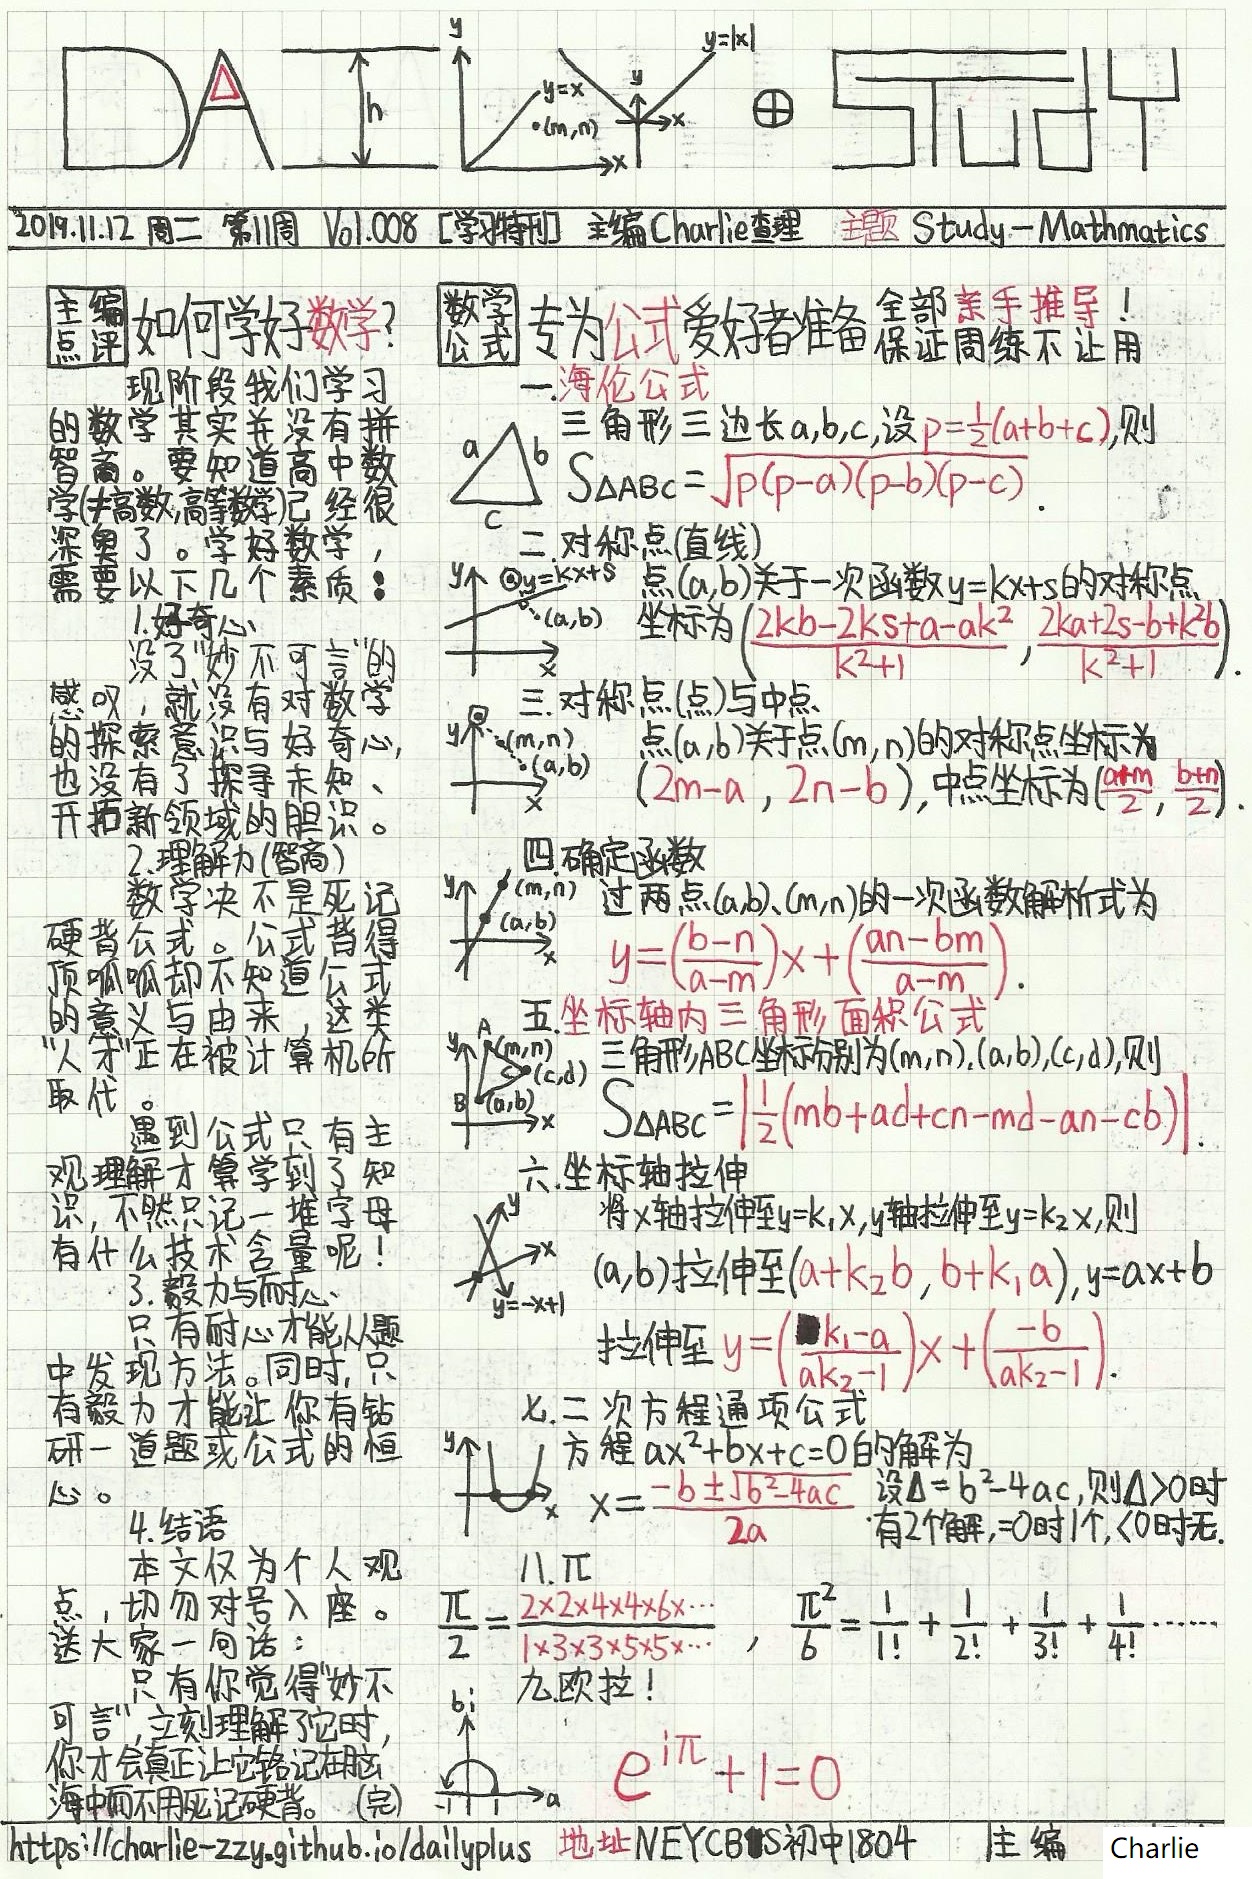 DAI h y y=x (m,n) x y y=|x| x ⊕ STUDY
2019.11.12 周二 第11周 Vol.008 [学习特刊] 主编Charlie查理 主题 Study-Mathmatics
主编点评 如何学好数学?
现阶段我们学习
的数学其实并没有拼
智商。要知道高中数
学(≠高数,高等数学)已经很
深奥了。学好数学,
需要以下几个素质:
1.好奇心
没了"妙不可言"的
感叹,就没有对数学
的探索意识与好奇心,
也没有了探寻未知、
开拓新领域的胆识。
2.理解力(智商)
数学决不是死记
硬背公式。公式背得
顶呱呱却不知道公式
的意义与由来,这类
"人才"正在被计算机所
取代。
遇到公式只有主
观理解才算学到了知
识,不然只记一堆字母
有什么技术含量呢!
3.毅力与耐心
只有耐心才能从题
中发现方法。同时,只
有毅力才能让你有钻
研一道题或公式的恒
心。
4.结语
本文仅为个人观
点,切勿对号入座。
送大家一句话:
只有你觉得"妙不
可言",立刻理解了它时,
你才会真正让它铭记在脑
海中而不用死记硬背。 (完)
数学公式 专为公式爱好者准备 全部亲手推导!
保证周练不让用
一.海伦公式
a b c
三角形三边长a,b,c,设p=1/2(a+b+c),则
S△ABC=√p(p-a)(p-b)(p-c).
二.对称点(直线)
y y=kx+s (a,b) x
点(a,b)关于一次函数y=kx+s的对称点
坐标为((2kb-2ks+a-ak²)/(k²+1), (2ka+2s-b+k²b)/(k²+1)).
三.对称点(点)与中点
y (m,n) (a,b) x
点(a,b)关于点(m,n)的对称点坐标为
(2m-a, 2n-b),中点坐标为((a+m)/2, (b+n)/2).
四.确定函数
y (m,n) (a,b) x
过两点(a,b)、(m,n)的一次函数解析式为
y=((b-n)/(a-m))x+((an-bm)/(a-m)).
五.坐标轴内三角形面积公式
y A (m,n) C (c,d) B (a,b) x
三角形ABC坐标分别为(m,n).(a,b),(c,d),则
S△ABC=|1/2(mb+ad+cn-md-an-cb)|.
六.坐标轴拉伸
y x y=-x+1
将x轴拉伸至y=k₁x,y轴拉伸至y=k₂x,则
(a,b)拉伸至(a+k₂b, b+k₁a), y=ax+b
拉伸至 y=((k₁-a)/(ak₂-1))x+((-b)/(ak₂-1)).
七.二次方程通项公式
y x
方程ax²+bx+c=0的解为
x=(-b±√b²-4ac)/2a 设△=b²-4ac,则△>0时
有2个解,=0时1个,<0时无.
八.π
π/2=(2×2×4×4×6×…)/(1×3×3×5×5×…), π²/6=1/1!+1/2!+1/3!+1/4!……
九.欧拉!
bi -1 1 a
e^iπ+1=0
https://charlie-zzy.github.io/dailyplus 地址 NEYCBS初中1804 主编 Charlie